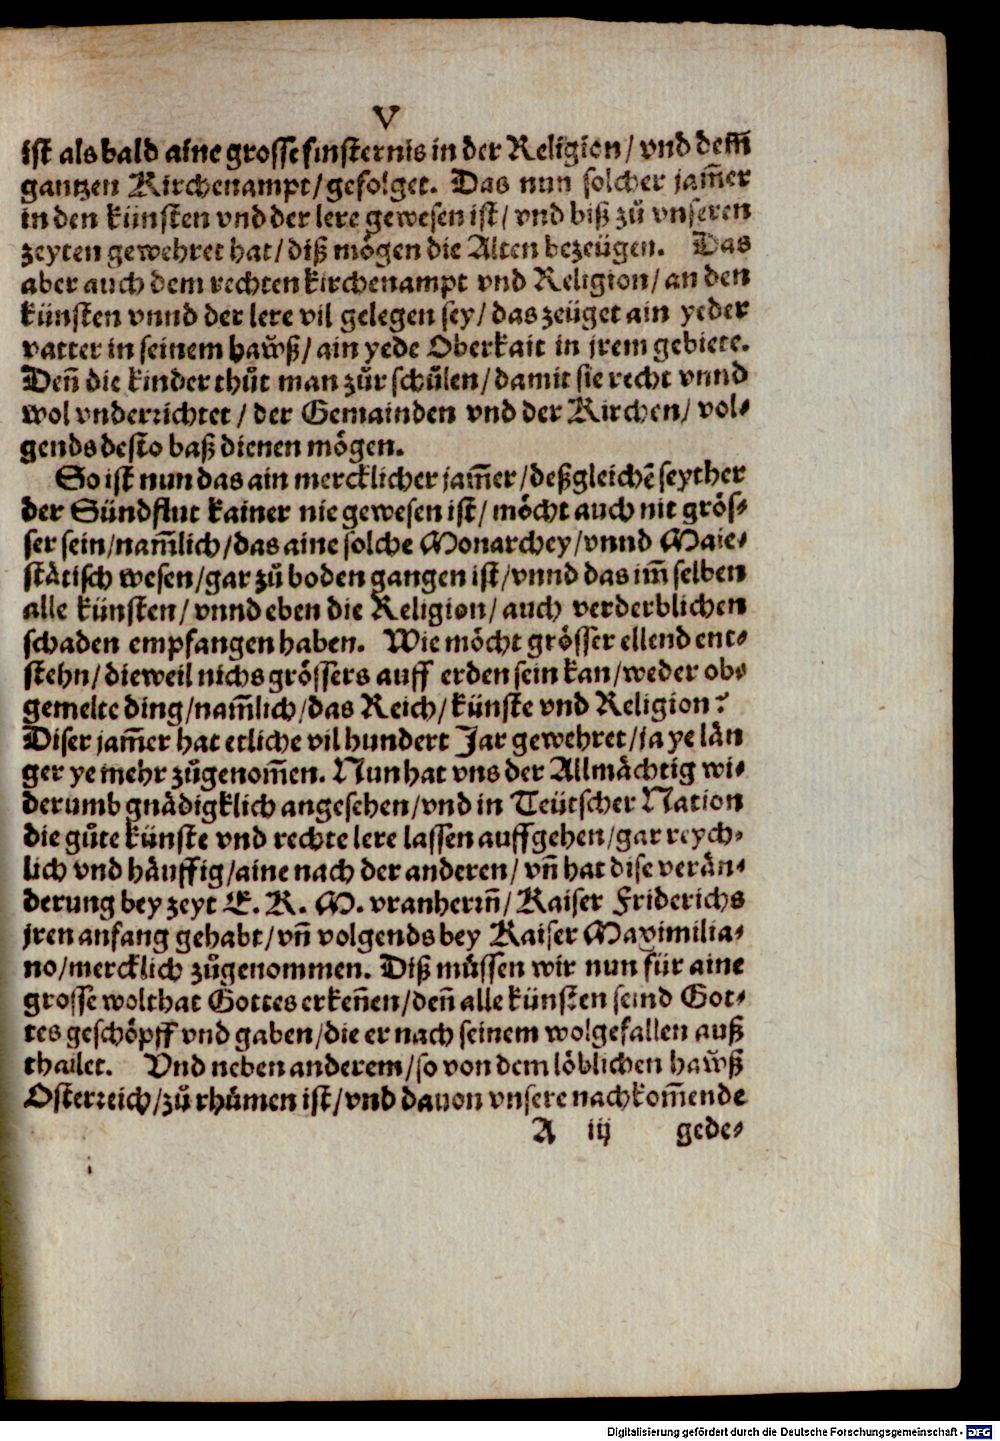 V
ist als bald aine grosse finsternis in der Religion/ vnd dem̃
gantzen Kirchenampt/ gefolget. Das nun solcher jam̃er
in den künsten vnd der lere gewesen ist/ vnd biß zů vnseren
zeyten gewehret hat/ diß mögen die Alten bezeügen. Das
aber auch dem rechten kirchenampt vnd Religion/ an den
künsten vnnd der lere vil gelegen sey/ das zeüget ain yeder
vatter in seinem haẘß/ ain yede Oberkait in jrem gebiete.
Deñ die kinder thůt man zůr schůlen/ damit sie recht vnnd
wol vnderrichtet/ der Gemainden vnd der Kirchen/ vol⸗
gends desto baß dienen mögen.
So ist nun das ain mercklicher jam̃er/ deßgleichẽ seyther
der Sündflut kainer nie gewesen ist/ möcht auch nit grös⸗
ser sein/ nam̃lich/ das aine solche Monarchey/ vnnd Maie⸗
stätisch wesen/ gar zů boden gangen ist/ vnnd das im̃ selben
alle künsten/ vnnd eben die Religion/ auch verderblichen
schaden empfangen haben. Wie möcht grösser ellend ent⸗
stehn/ dieweil nichs grössers auff erden sein kan/ weder ob⸗
gemelte ding/ nam̃lich/ das Reich/ künste vnd Religion?
Diser jam̃er hat etliche vil hundert Jar gewehret/ ja ye län
ger ye mehr zůgenom̃en. Nun hat vns der Allmächtig wi⸗
derumb gnädigklich angesehen/ vnd in Teütscher Nation
die gůte künste vnd rechte lere lassen auffgehen/ gar reych⸗
lich vnd häuffig/ aine nach der anderen/ vñ hat dise verän⸗
derung bey zeyt E. K. M. vranherrñ/ Kaiser Friderichs
jren anfang gehabt/ vñ volgends bey Kaiser Maximilia⸗
no/ mercklich zůgenommen. Diß müssen wir nun für aine
grosse wolthat Gottes erkeñen/ deñ alle künsten seind Got⸗
tes geschöpff vnd gaben/ die er nach seinem wolgefallen auß
thailet. Vnd neben anderem/ so von dem löblichen haẘß
Osterreich/ zů rhůmen ist/ vnd dauon vnsere nachkom̃ende
A iij gede⸗
Digitalisierung gefördert durch die Deutsche Forschungsgemeinschaft - DFG